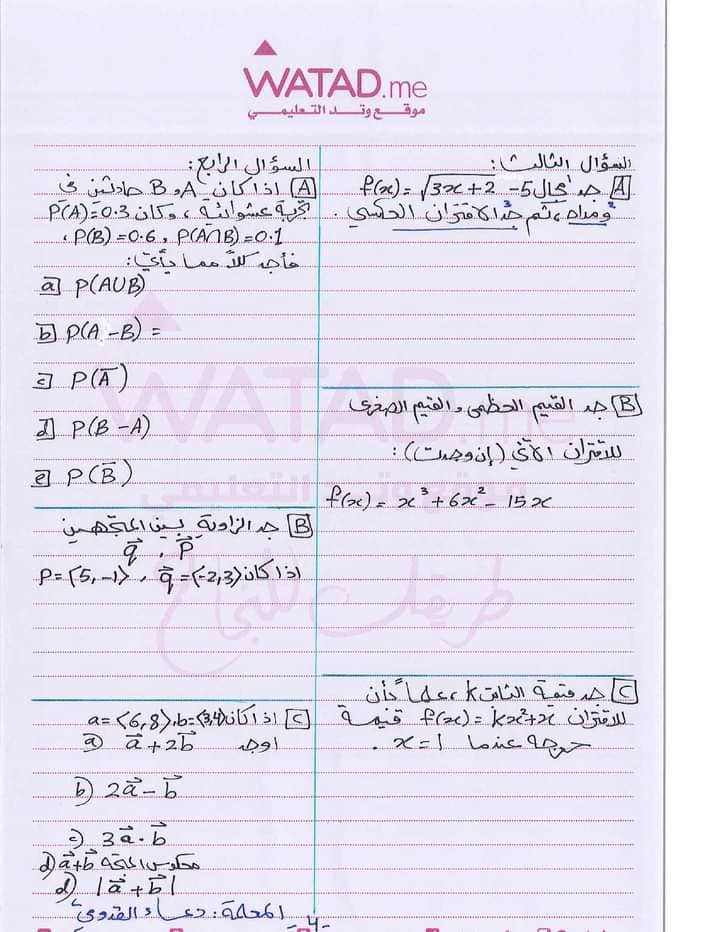 WATAD.me
موقع وتد التعليمي
السؤال الثالث:
A جد مجال f(x) = √3x+2 - 5
ومداه، ثم جد الاقتران العكسي.
B جد القيم العظمى والقيم الصغرى
للاقتران الآتي (إن وجدت):
f(x) = x³ + 6x² - 15x
C جد قيمة الثابت k، علماً بأن
للاقتران f(x) = kx²+x قيمة
حرجة عندما x=1.
السؤال الرابع:
A إذا كان A و B حادثين في
تجربة عشوائية، وكان P(A)=0.3
، P(B)=0.6, P(A∩B)=0.1
فأجد كلاً مما يأتي:
a P(AUB)
b P(A-B) =
c P(Ā)
d P(B-A)
e P(B̄)
B جد الزاوية بين المتجهين
q⃗ , p⃗
إذا كان P=⟨5,-1⟩, q⃗=⟨-2,3⟩
C إذا كان a=⟨6,8⟩, b=⟨3,4⟩
اوجد a) a⃗+2b⃗
b) 2a⃗-b⃗
c) 3a⃗·b⃗
d) a⃗+b⃗ معكوس المتجه
d) |a⃗+b⃗|
المعلمة: دعاء القدومي
-4-
WATAD.me
موقع وتد التعليمي
طريقك للنجاح